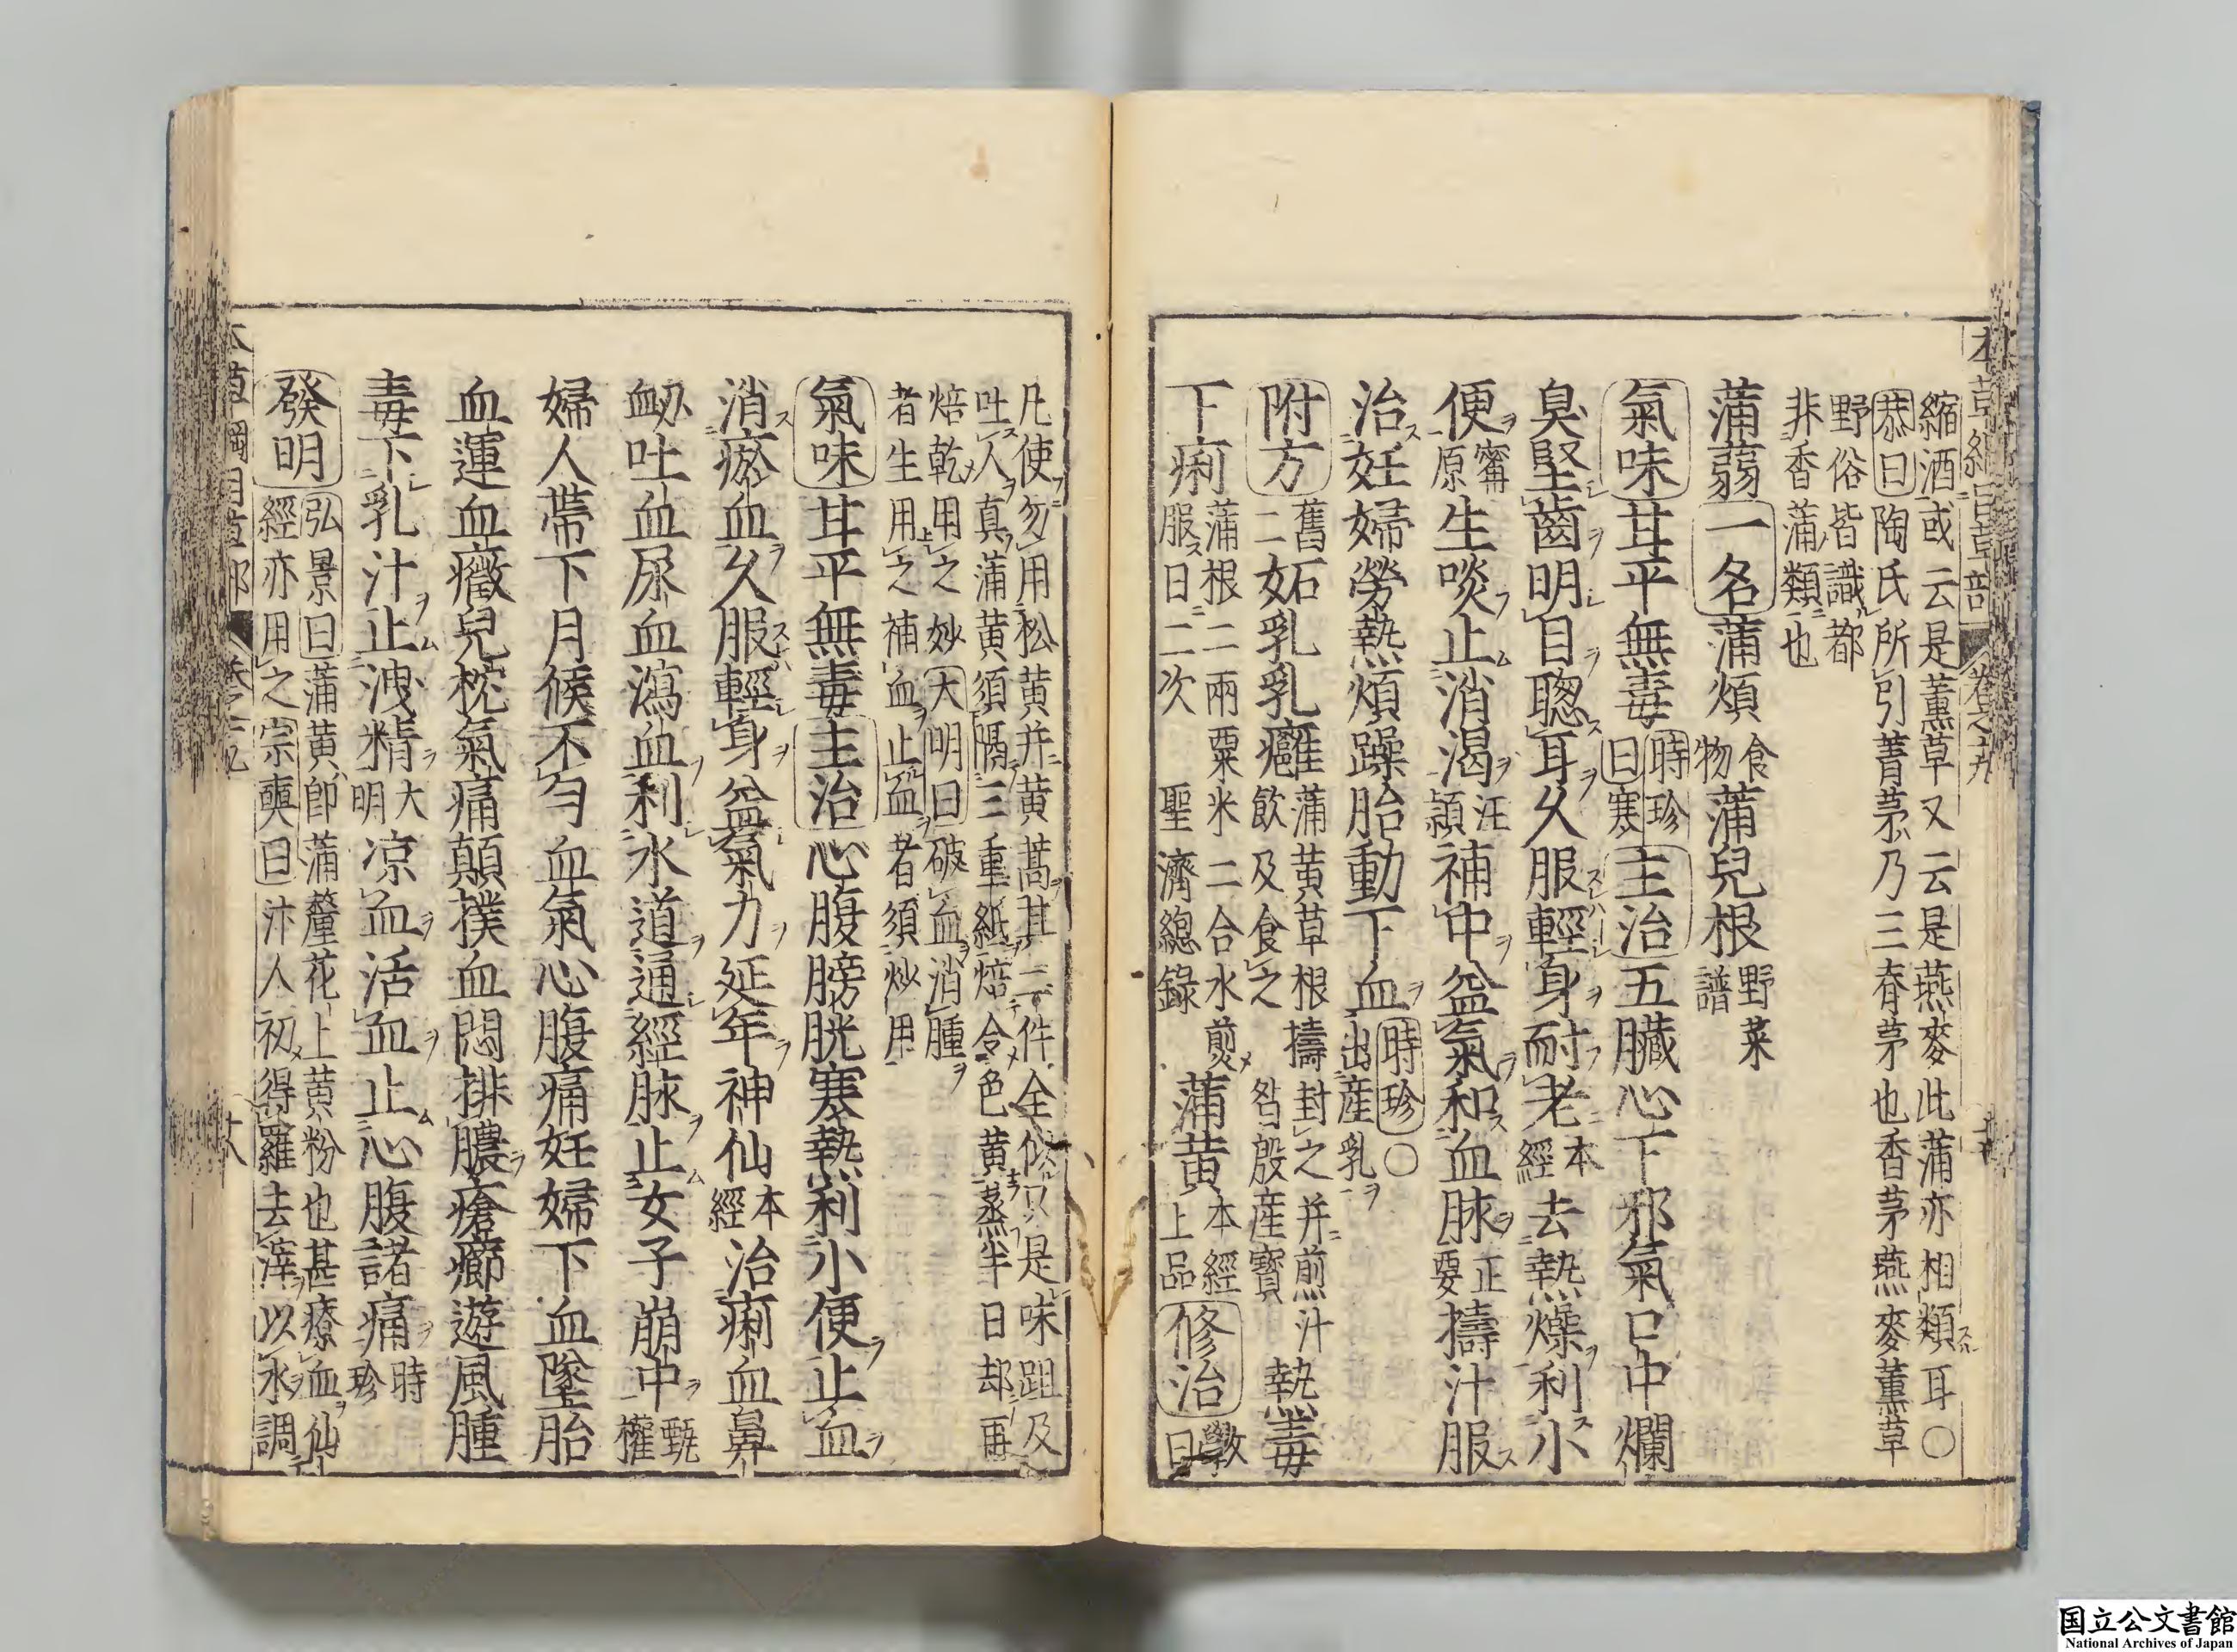 縮酒或云是薫草又云是燕麥此蒲亦相類耳〇
恭曰陶氏所引菁茅乃三脊茅也香茅燕麥薫草
野俗皆識都
非香蒲類也
蒲蒻一名蒲煩食物蒲兒根野菜譜
氣味甘平無毒時珍曰寒主治五臓心下邪氣口中爛
臭堅齒明目聰耳久服輕身耐老本經去熱燥利小
便甯原生啖止消渴汪頴補中益氣和血脉正要擣汁服
治妊婦勞熱煩躁胎動下血時珍〇出産乳
附方舊二妬乳乳癰蒲黄草根擣封之并煎汁飲及食之昝殷産寶熱毒
下痢蒲根二兩粟米二合水煎服日二次聖濟總錄蒲黄本經上品修治斆曰
凡使勿用松黄并黄蒿其二件全似只是味跙及
吐人真蒲黄須隔三重紙焙令色黄蒸半日却再
焙乾用之妙大明曰破血消腫
者生用之補血止血者須炒用
氣味甘平無毒主治心腹膀胱寒熱利小便止血
消瘀血久服輕身益氣力延年神仙本經治痢血鼻
衂吐血尿血瀉血利水道通經脉止女子崩中甄權
婦人帶下月候不勻血氣心腹痛妊婦下血墜胎
血運血癥兒枕氣痛顛撲血悶排膿瘡癤遊風腫
毒下乳汁止洩精大明凉血活血止心腹諸痛時珍
發明弘景曰蒲黄即蒲釐花上黄粉也甚療血仙
經亦用之宗奭曰汴人初得羅去滓以水調
国立公文書館
National Archives of Japan